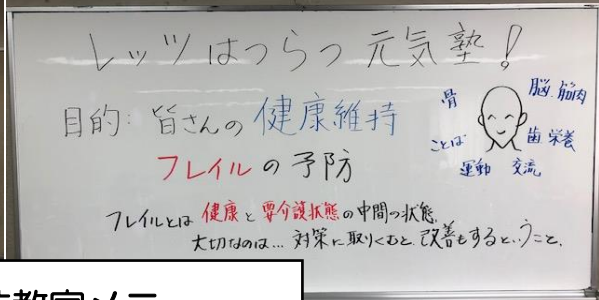 レッツはつらつ元気塾!
目的: 皆さんの健康維持
フレイルの予防
骨
脳 筋肉
ことば
歯 栄養
運動 交流
フレイルとは 健康と要介護状態の中間の状態
大切なのは... 対策に取りくむと 改善もするということ。
教室メモ